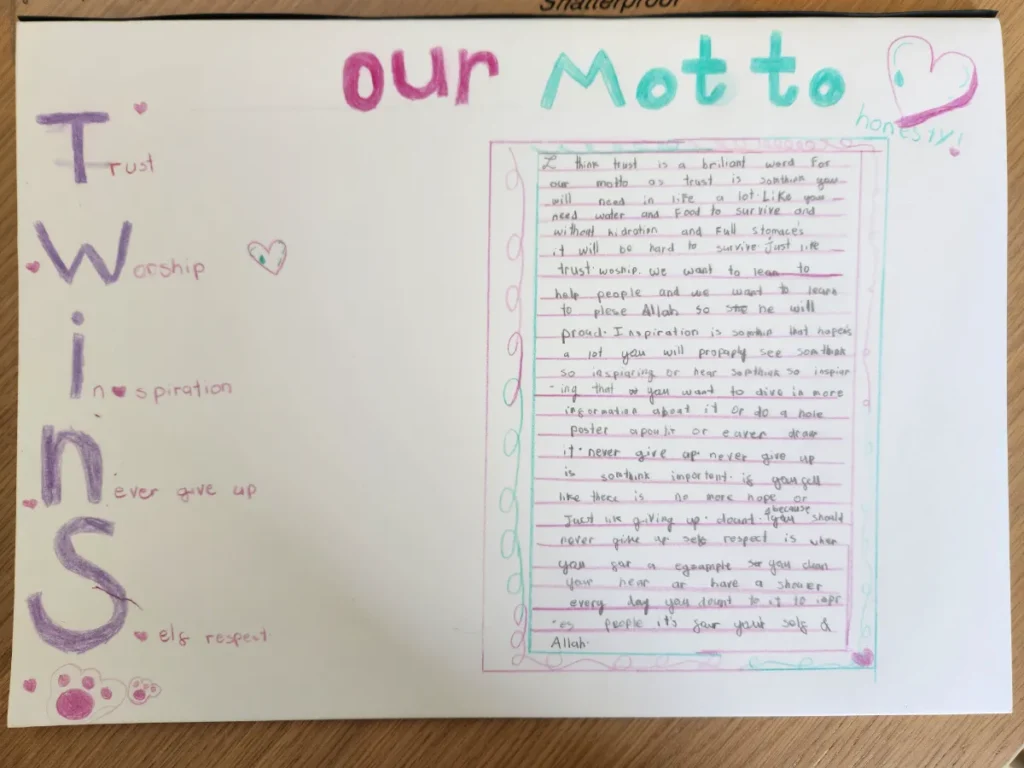 Shatterproof
our Motto
honesty!
Trust
Worship
inspiration
never give up
Self respect
I think trust is a briliant word For
our motto as trust is somthink you
will need in life a lot. Like you
need water and Food to survive and
without hidration and Full stomace's
it will be hard to survive Just like
trust. woship. we want to lean to
help people and we want to learn
to plese Allah so he will
proud. Inspiration is somthin that
a lot you will propaply see somthink
so inspiaring or hear somthink so inspiar
-ing that you want to dive in more
information about it or do a hole
poster or eaver draw
it. never give up. never give up
is somthink important. if you fell
like there is no more hope or
Just like giving up. dount. because you should
never give up self respect is when
you for a egxample you clean
your or have a shower
every day you dount to it to impr
-es people it's for your self &
Allah.